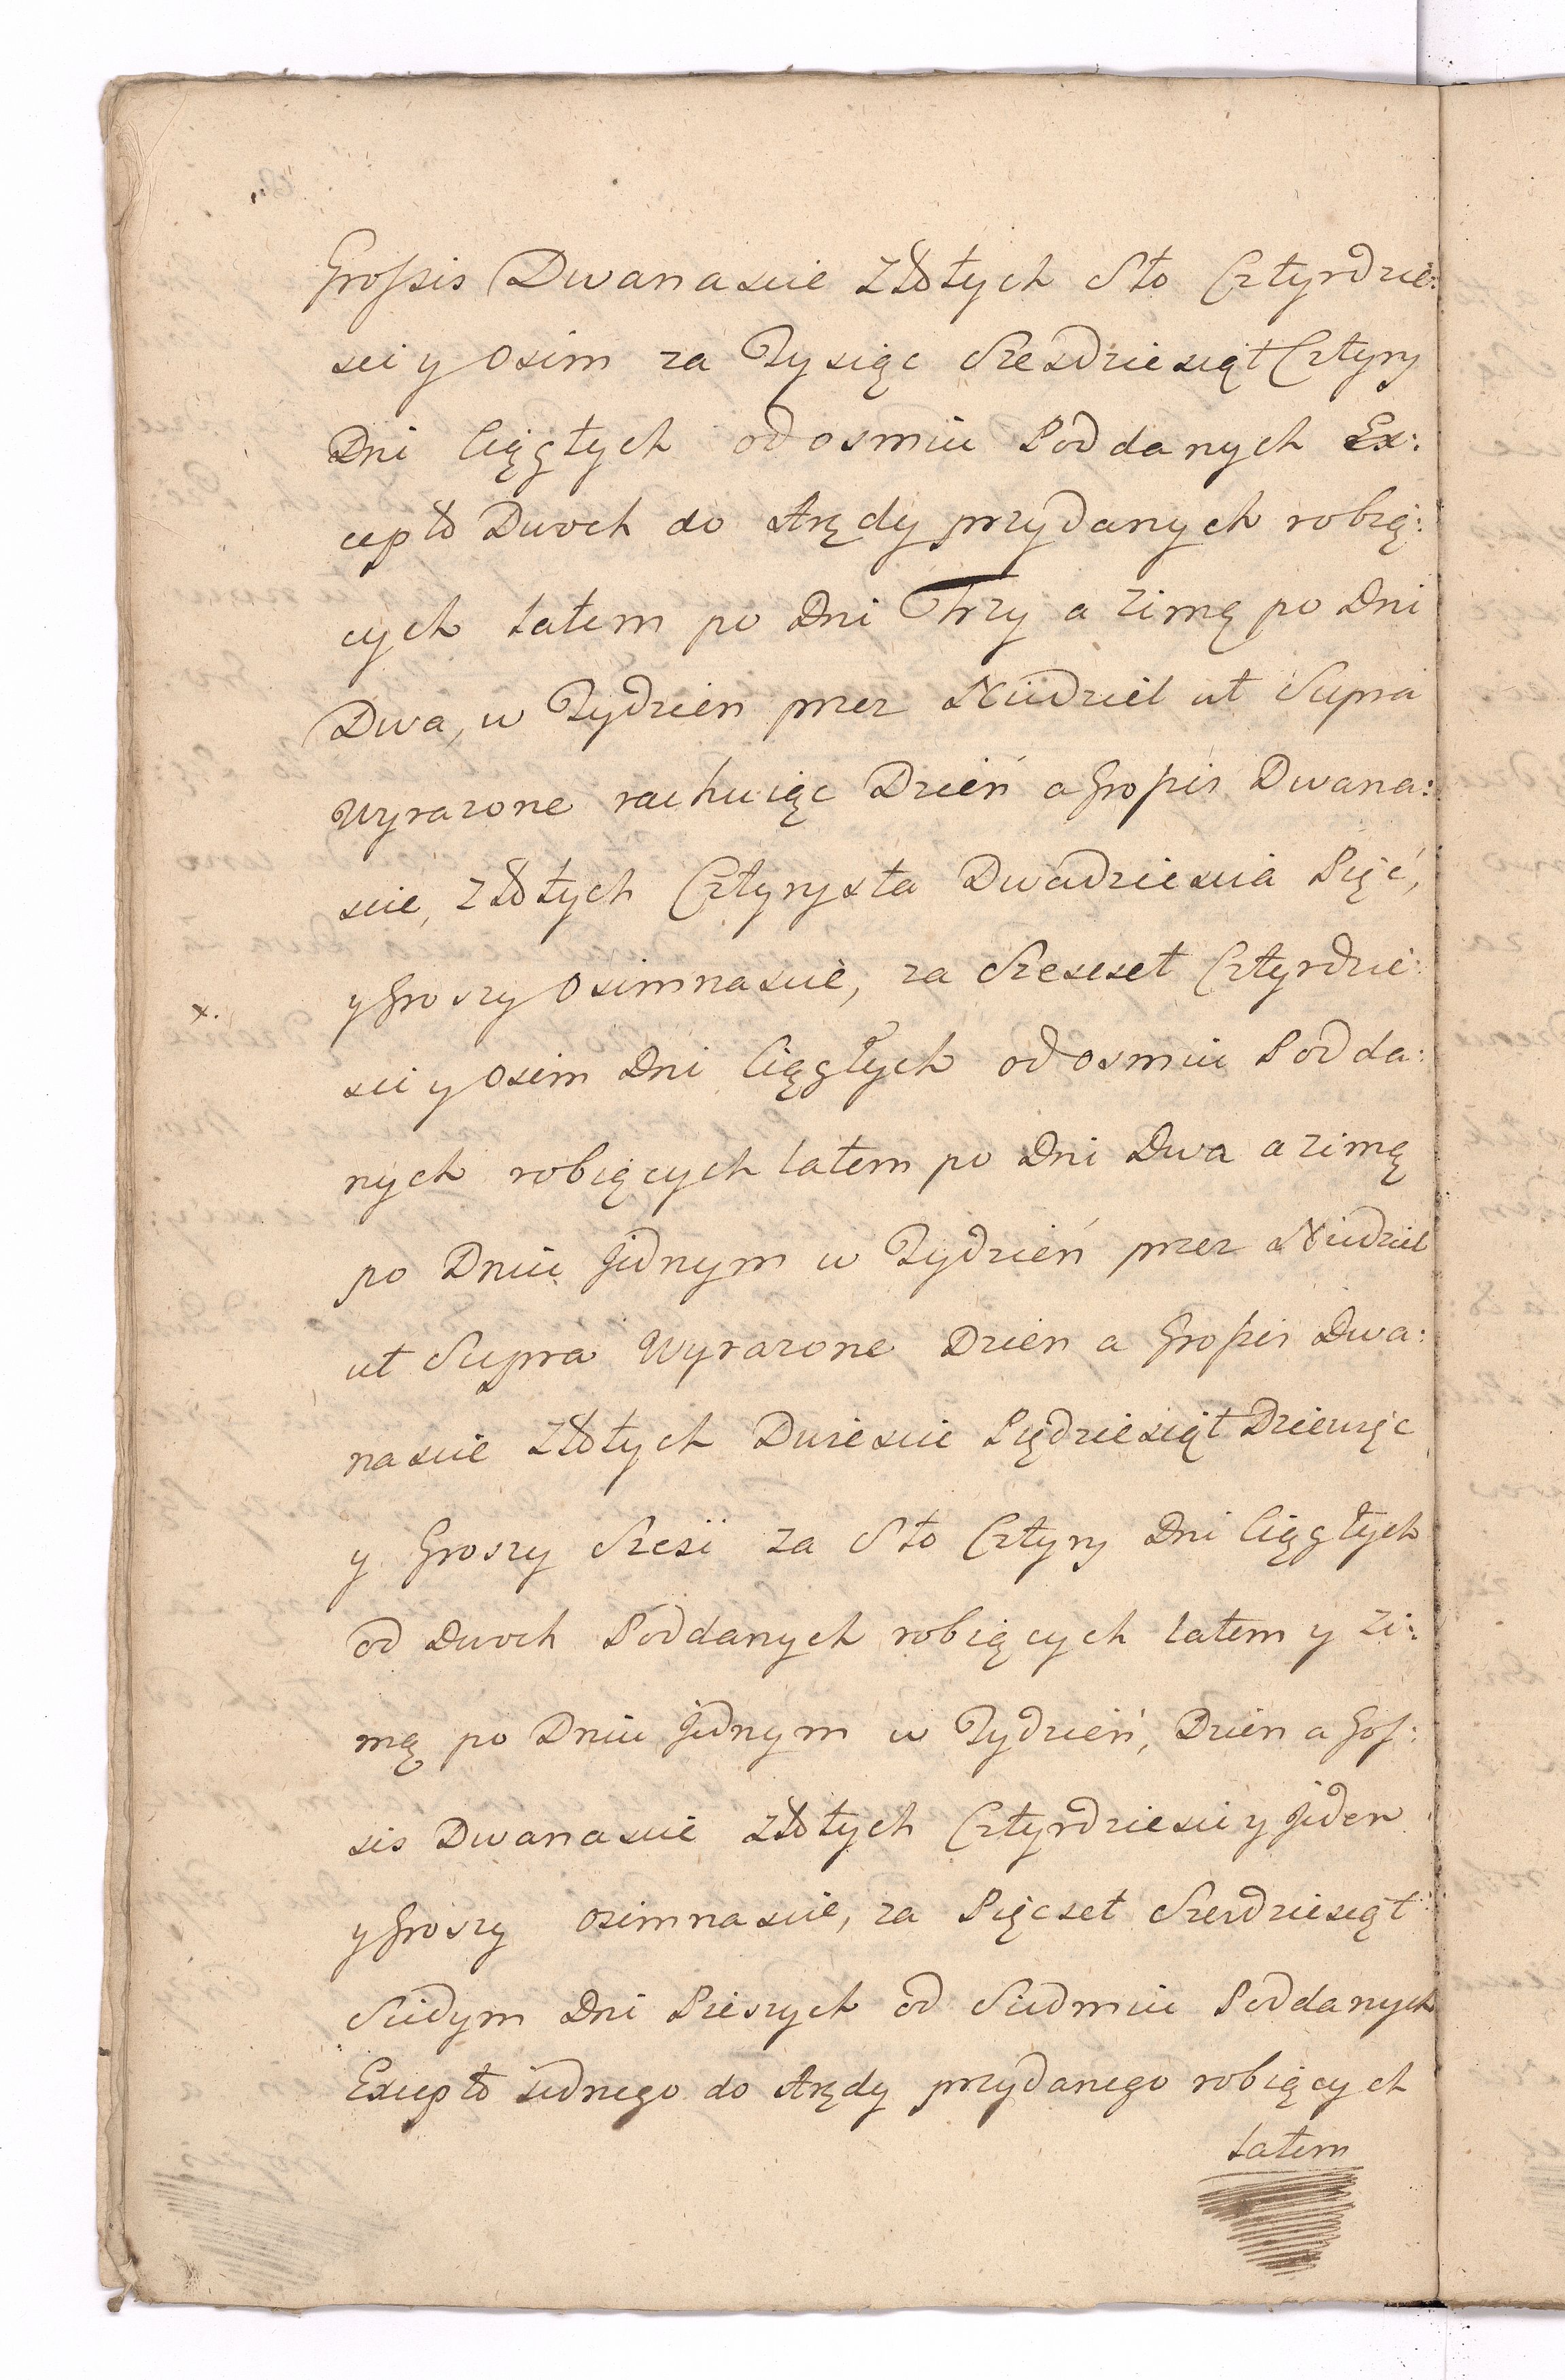 Grossis Dwanascie Złotych Sto Cztyrdzie:
sci y Osim za Tysiąc Szesdziesiąt Cztyry
Dni Ciągłych od osmiu Poddanych Ex:
cepto Dwoch do Arędy przydanych robią:
cych latem po Dni Trzy a zimą po Dni
Dwa, w Tydzien przez Niedziel ut Supra
Wyrazone rachuiąc Dzień a Grossis Dwana:
scie, Złotych Cztyrysta Dwadziescia Pięć,
y Groszy Osimnascie, za Szesset Cztyrdzie:
x.
sci y Osim Dni Ciągłych od osmiu Podda:
nych robiących latem po Dni Dwa a zimą
po Dniu Jednym w Tydzień przez Niedziel
ut Supra Wyrazone Dzien a Grossis Dwa:
nascie Złotych Dwiescie Piędziesiąt Dziewięc
y Groszy Szesć za Sto Cztyry Dni Ciągłych
od Dwoch Poddanych robiących latem y Zi:
mą po Dniu Jednym w Tydzień, Dzien a Gos:
sis Dwanascie Złotych Cztyrdziesci y Jeden
y Groszy osimnascie, za Pięcset Szesdziesiąt
Siedym Dni Pieszych od Siedmiu Poddanych
Excepto iednego do Arędy przydanego robiących
latem